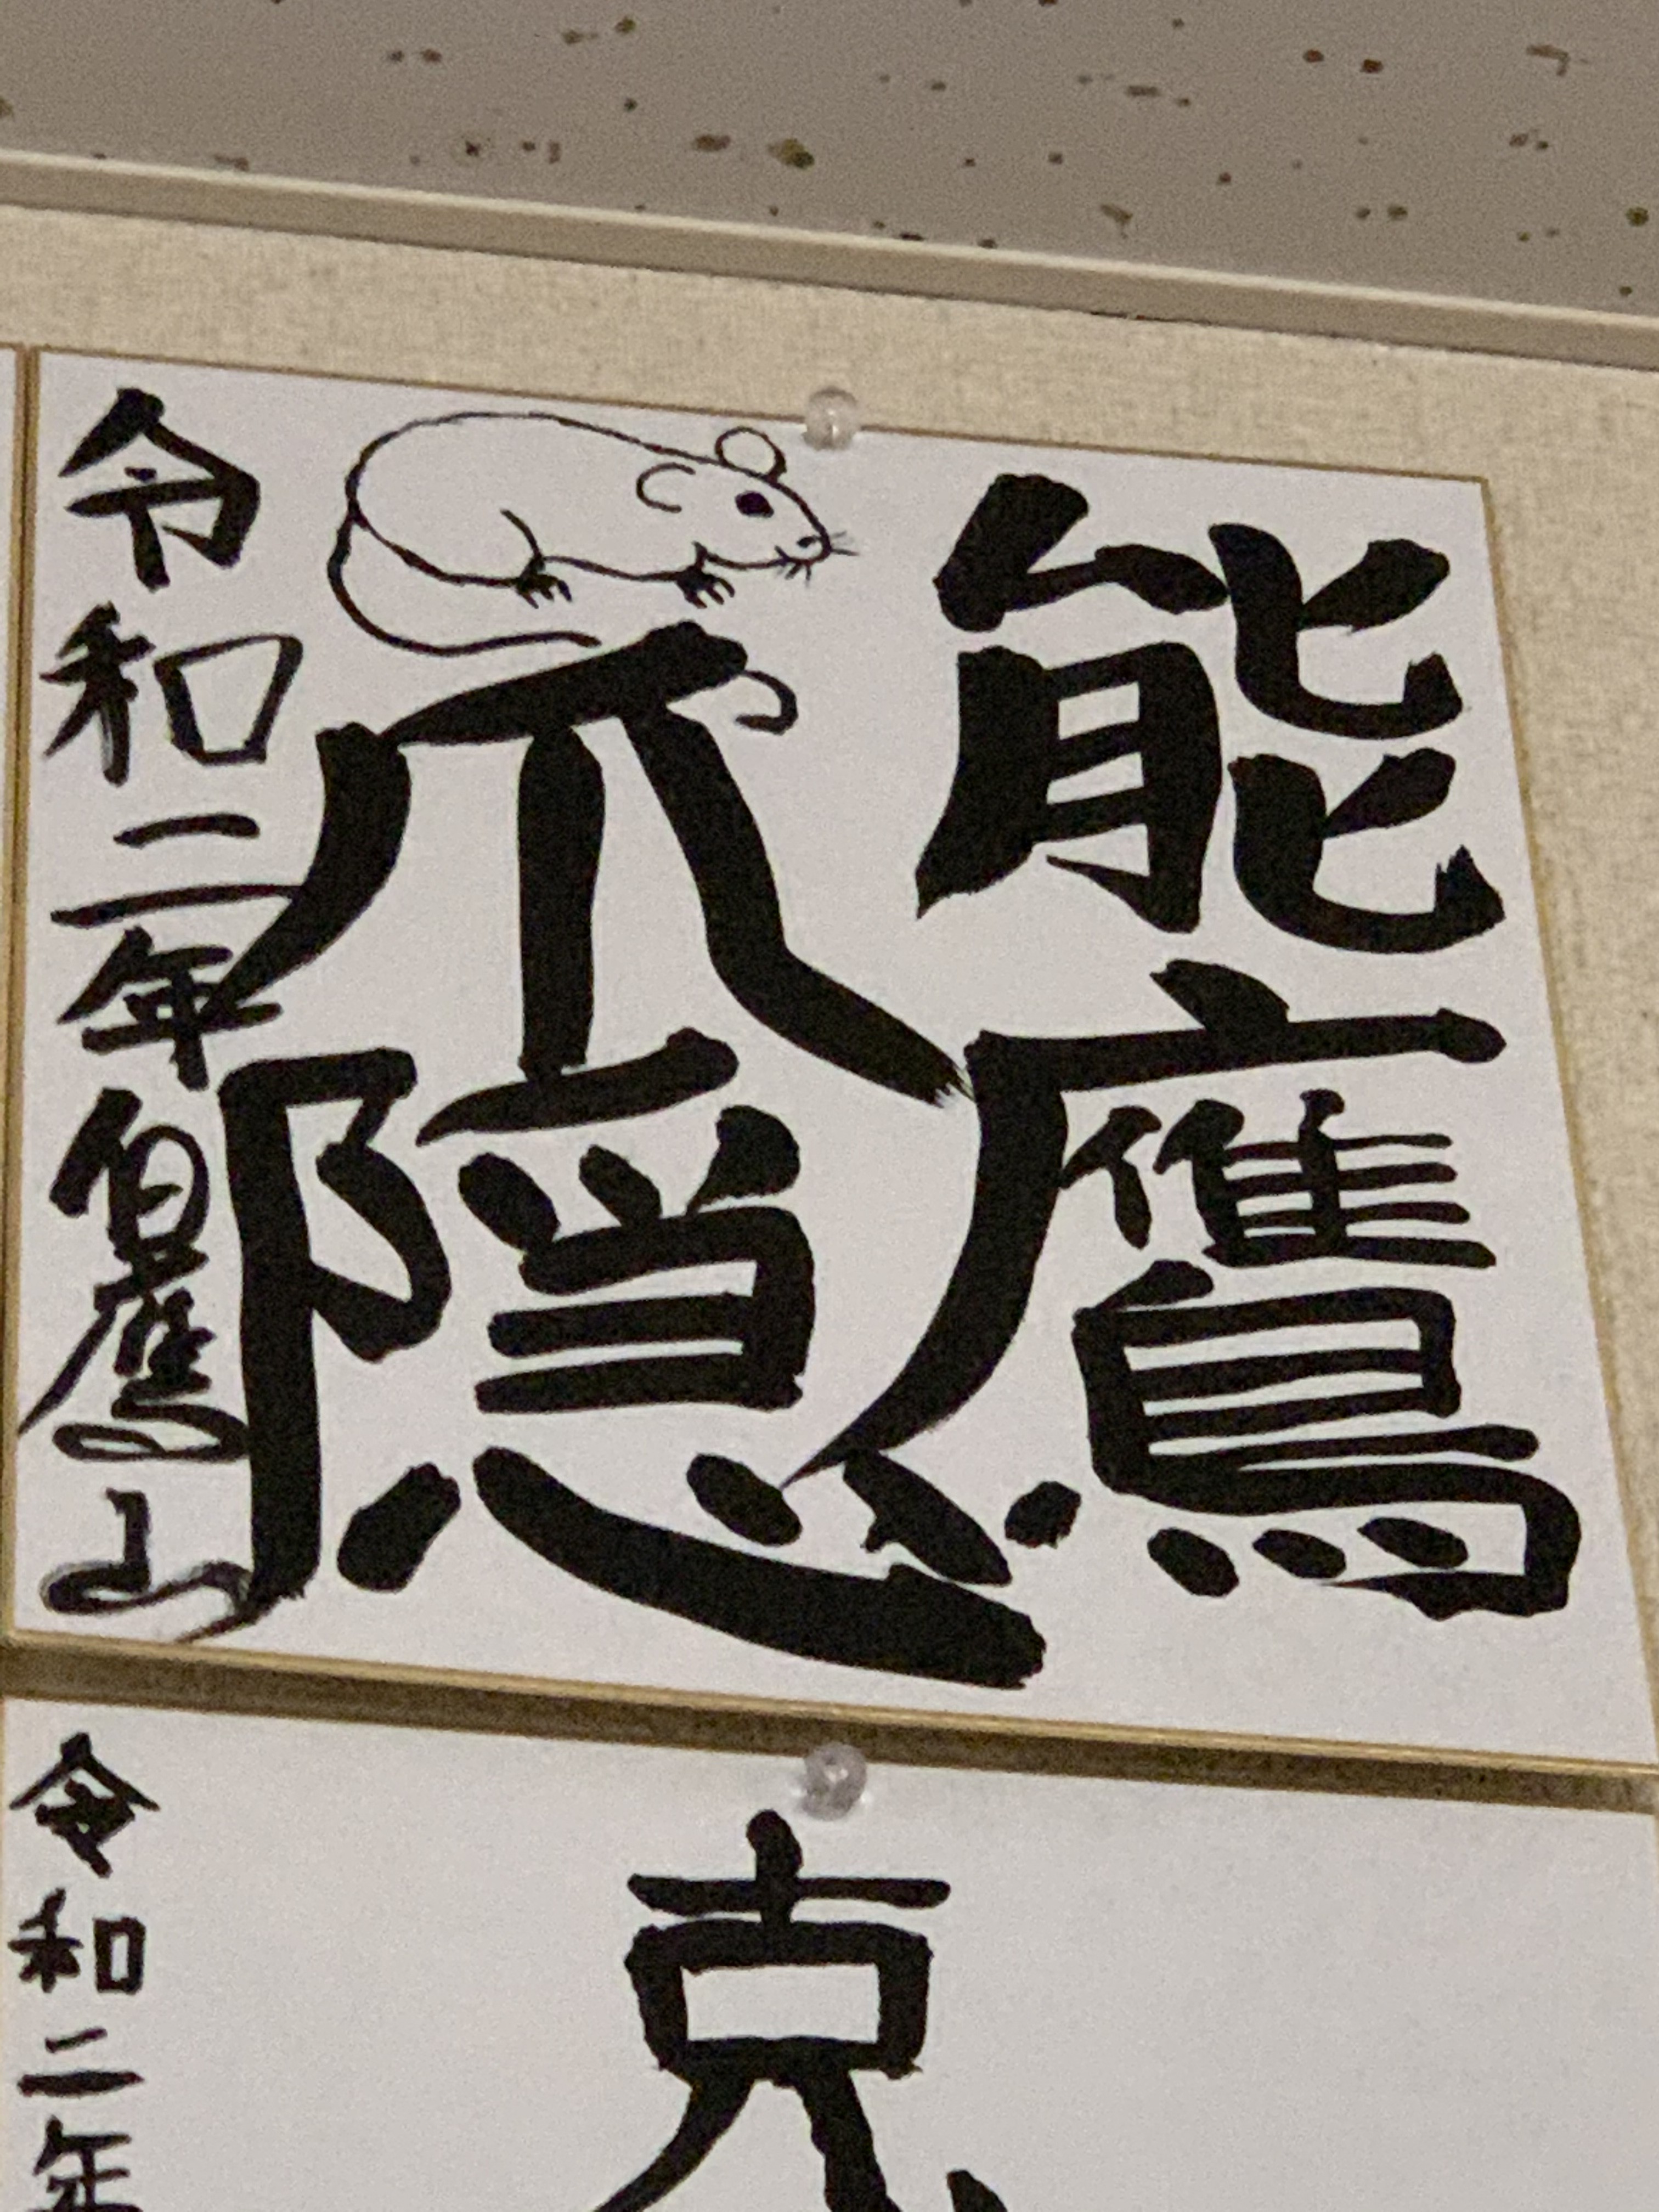 能鷹
爪隠
令和二年伯鷹山
克
令和二年